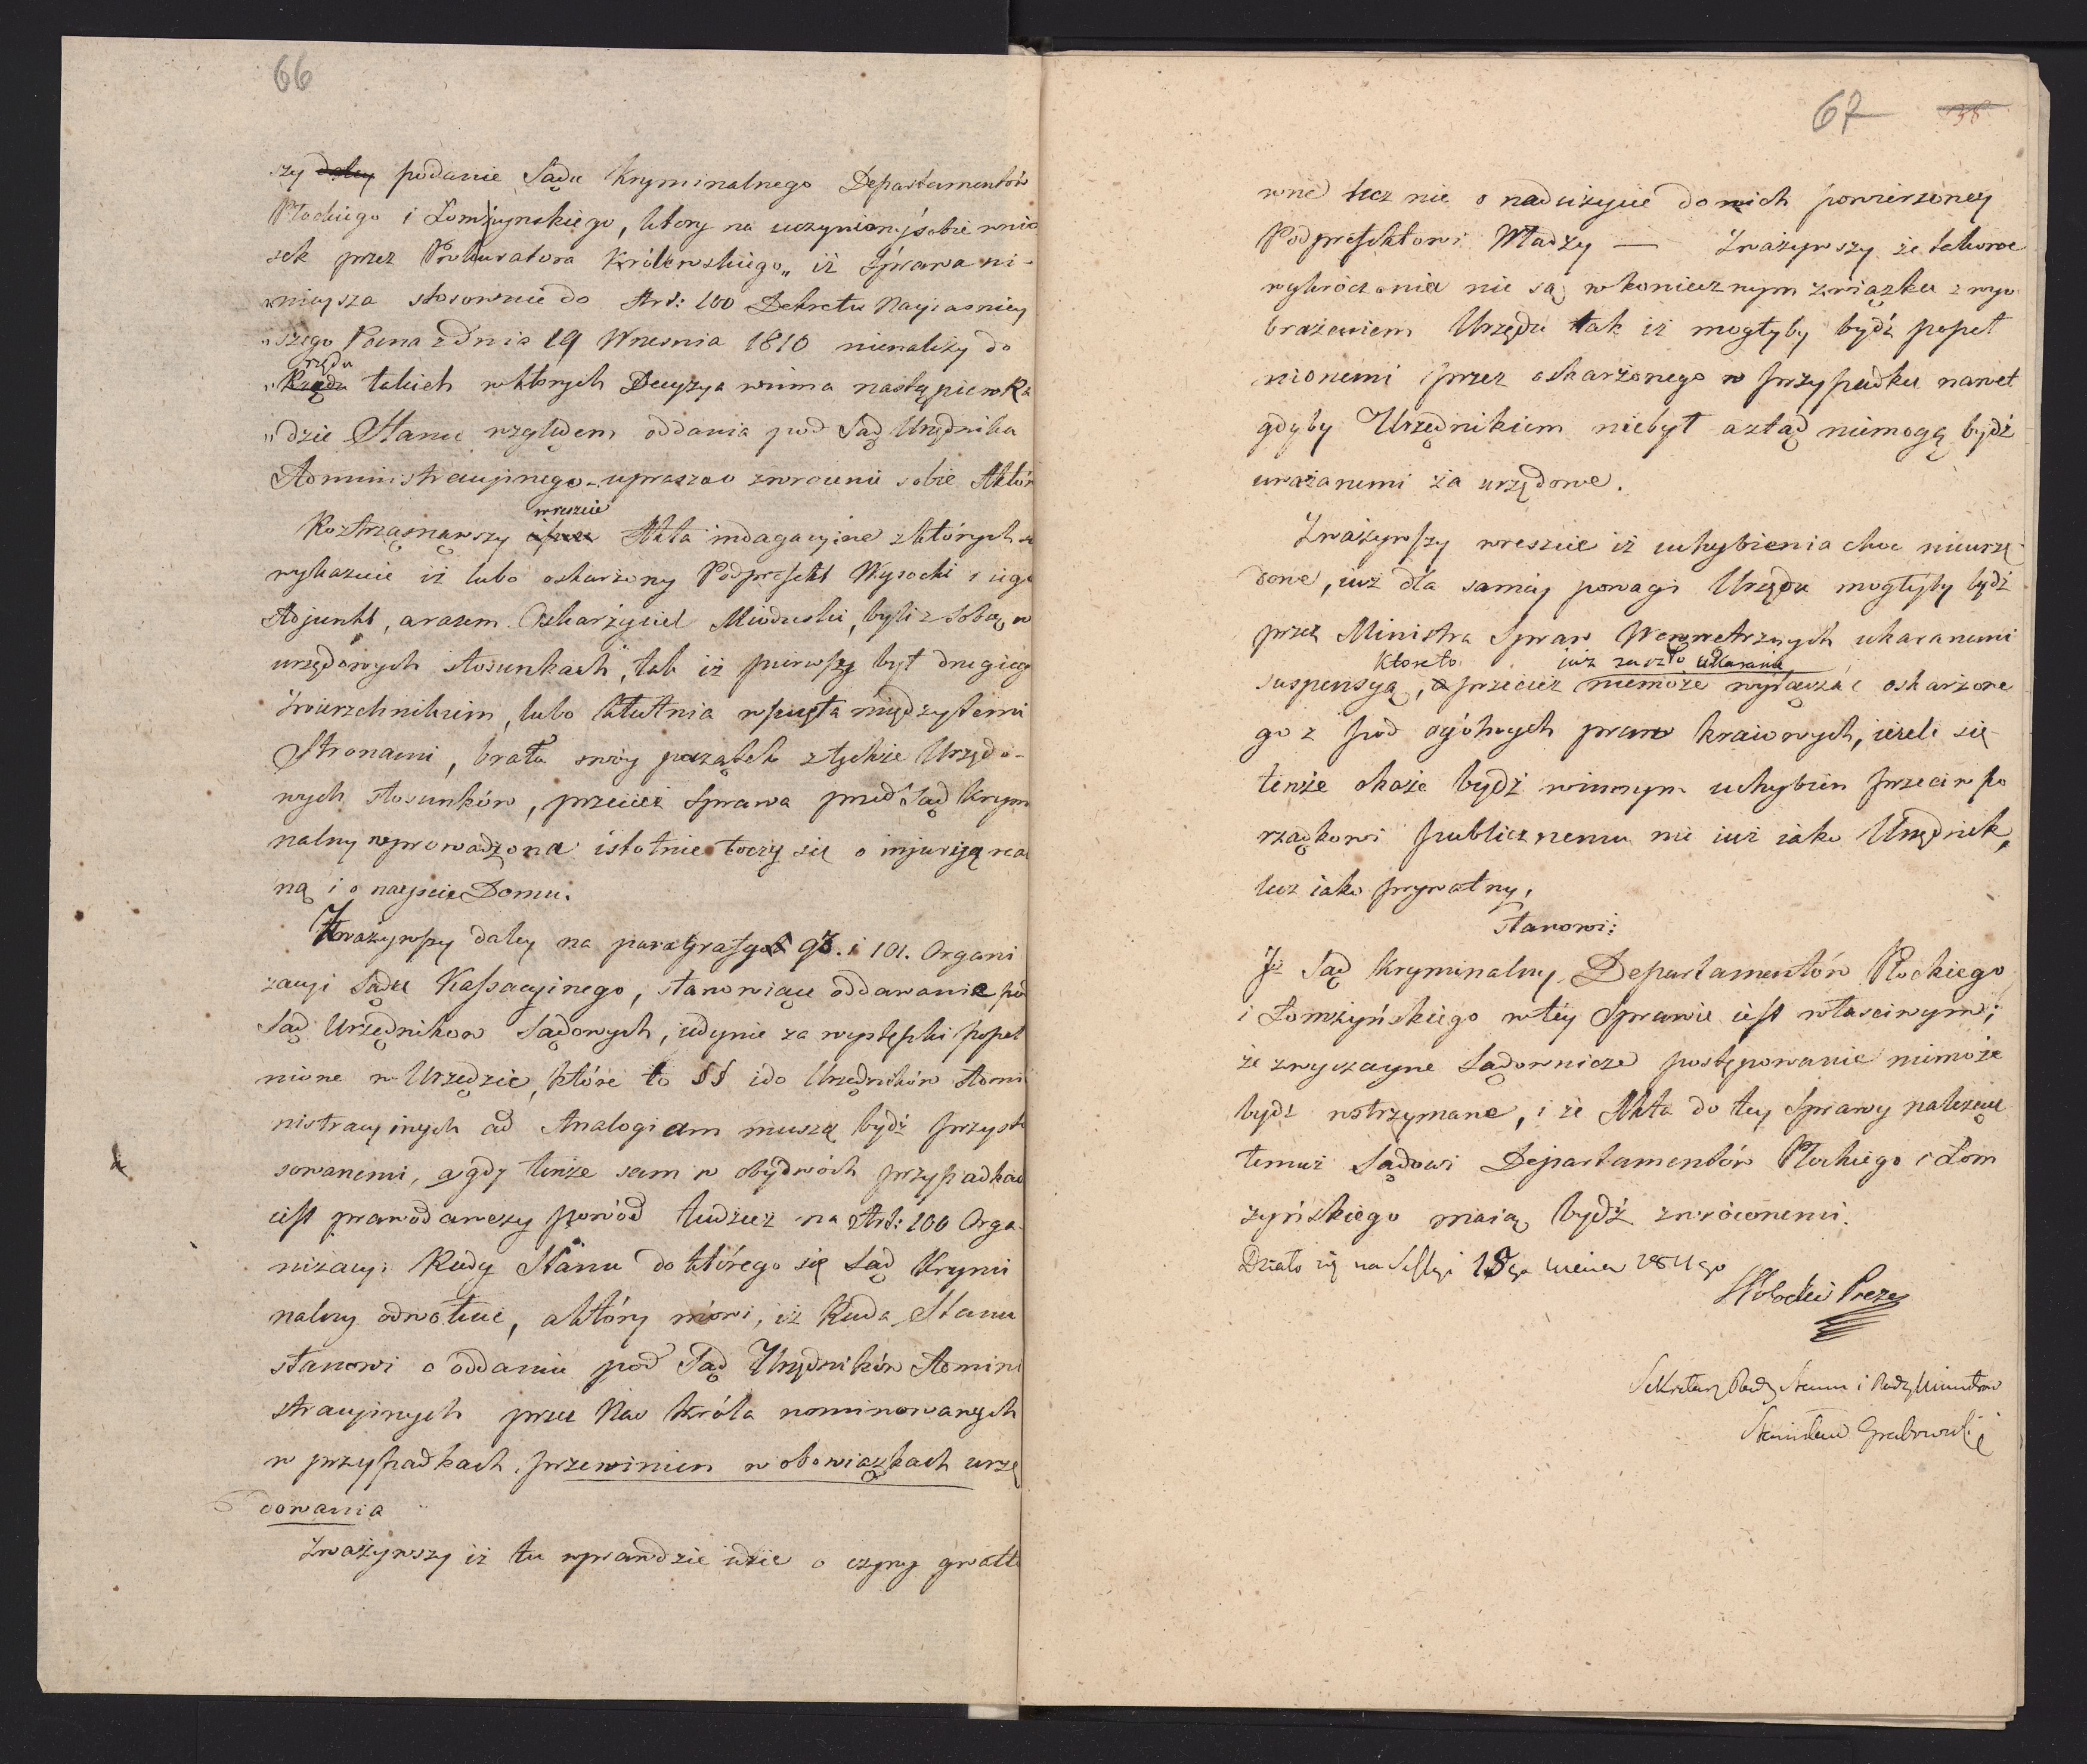 66
szy daley podanie Sądu Kryminalnego Departamentów
Płockiego i Łomżyńskiego, który na uczyniony sobie wnio
sek przez Prokuratora Królewskiego „iż sprawa ni-
„nieysza stosownie do Art: 100 Dekretu Nayiasniey
„szego Pana z Dnia 19 Wrzesnia 1810 nienależy do
rzędu
„Rzędu takich w których Decyzya winna nastąpić w Ra
„dzie Stanu względem oddania pod Sąd Urzędnika
Administracyinego„ uprasza o zwrócenie sobie Aktów
wreszcie
Roztrząsnąwszy Akta indagacyine z których się
wykazuie iż lubo oskarżony Podprefekt Wysocki i iego
Adjunkt, a razem Oskarżyciel Mioduski, byli z sobą w
urzędowych stosunkach, tak iż pierwszy był drugiego
Zwierzchnikiem, lubo kłutnia wszczęta między temi
Stronami, brała swóy początek z tychże Urzędo-
wych stosunków, przecież Sprawa przed Sąd Krymi
nalny wprowadzona istotnie toczy się o injuryą real
ną i o naejscie Domu.
Zważywszy daley na paragrafy 93. i 101. Organi
zacyi Sądu Kassacyinego, stanowiące oddawanie pod
Sąd Urzędników Sądowych, iedynie za występki popeł
nione w Urzędzie, które to §§ i do Urzędników Admi
nistracyinych ad Analogiam muszą bydź przysto
sowanemi, a gdy tenże sam w obydwóch przypadkach
iest prawodawczy powód tudzież na Art: 100 Orga
nizacyi Rady Stanu do którego się Sąd Krymi
nalny odwołuie, a który mówi, iż Rada Stanu
stanowi o oddaniu pod Sąd Urzędników Admini
stracyinych przez Nas Króla nominowanych
w przypadkach przewinien w obowiązkach urzę
dowania
Zważywszy iż tu wprawdzie idzie o czyny gwałto
67 38
wne lecz nie o nadużycie do nich powierzoney
Podprefektowi Władzy — Zważywszy że takowe
wykroczenia nie są w koniecznym związku z wyo
brażeniem Urzędu tak iż mogłyby bydź popeł
nionemi przez oskarżonego w przypadku nawet
gdyby Urzędnikiem niebył a ztąd niemogą bydź
uważanemi za urzędowe.
Zważywszy wreszcie iż uchybienia choc nieurzę-
dowe, iuż dla samey powagi Urzędu mogłyby bydź
przez Ministra Spraw Wewnetrznych ukaranemi
któreto iuż zaszło ukaranie
suspensyą, a przecież niemoże wyłączać oskarżone
go z pod ogólnych praw kraiowych, ieżeli się
tenże okaże bydź winnym uchybień przeciw po
rządkowi publicznemu nie iuż iako Urzędnik,
lecz iako prywatny,
Stanowi:
Iż Sąd Kryminalny Departamentów Płockiego
i Łomżyńskiego w tey Sprawie iest właściwym;
że zwyczayne Sądownicze postępowanie niemoże
bydź wstrzymane, i że Akta do tey Sprawy należące
temuż Sądowi Departamentów Płockiego i Łom
żyńskiego maią bydź zwróconemi.
Działo się na Sessyi 18go
Prezes
Sekretarz Rady Stanu i Rady Ministrów
Stanisław Grabowski